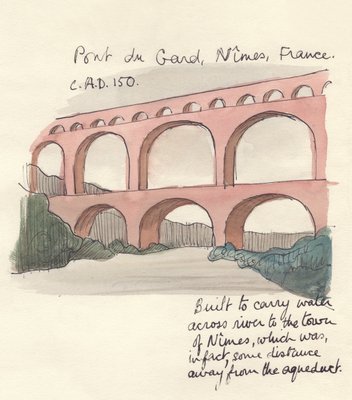 Pont du Gard, Nîmes, France.
c. A.D. 150.
Built to carry water
across river to the town
of Nîmes, which was,
in fact, some distance
away from the aqueduct.